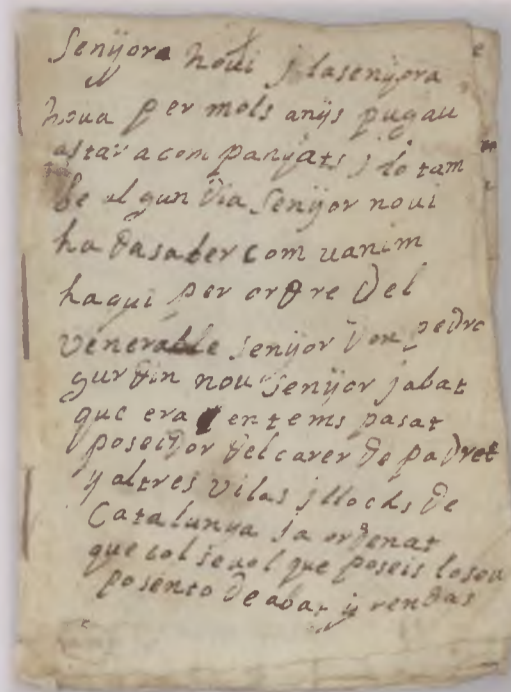 Senÿora noui j lasenÿora
noua per mols anÿs pugau
astar acom panÿats j io tam
be al gun dia Senÿor noui
ha dasaber com uanim
haqui per ordre del
venerable senÿor don pedro
gurdin nou senÿor jabat
que era en tems pasat
poseidor del carer de padret
y altres vilas j llochs de
Catalunya ja ordenat
que col seuol que poseis losou
posento de abat y rendas